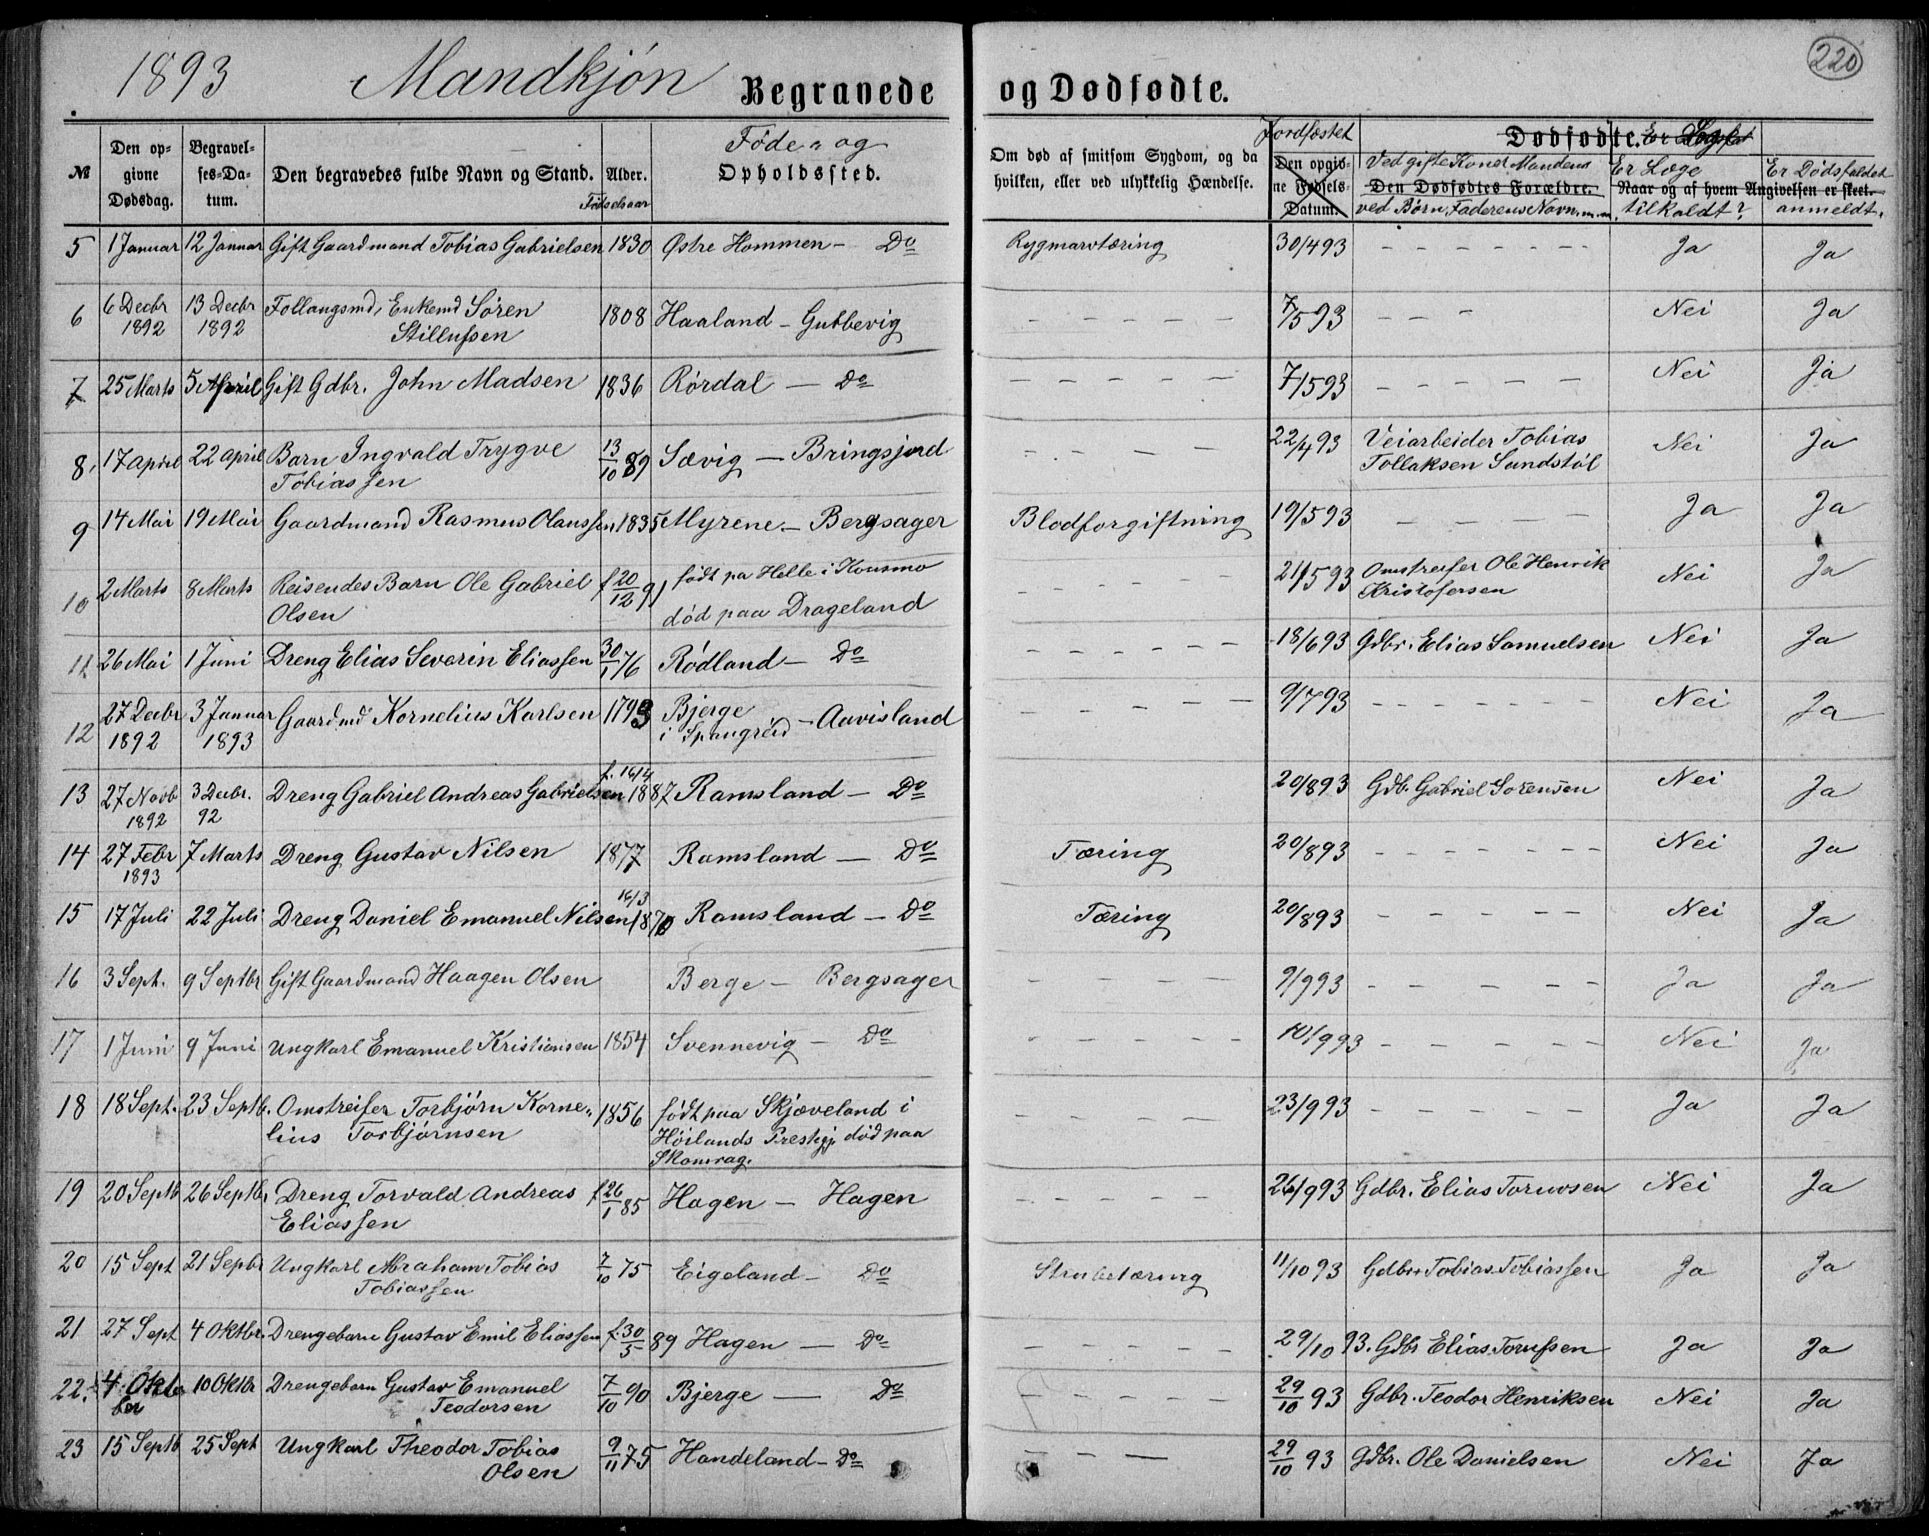 1893 Mandkjón Begravede og Dødfødte. 220
№ Den opgivne Dødsdag. Begravelses-Datum. Den begravedes fulde Navn og Stand. Alder. Fødselsaar Føde- og Opholdssted. Om død af smitsom Sygdom, og da hvilken, eller ved ulykkelig Hændelse. Jordfæstet Den opgivne Fødsels-Datum. Dødfødte. Ved gifte Koner Mandens Den Dødfødtes Forældre. ved Børn, Faderens Navn. Er Læge Naar og af hvem Angivelsen er skeet. tilkaldt? Er Dødsfaldet anmeldt.
5 1 Januar 12 Januar Gift Gaardmand Tobias Gabrielsen 1830 Østre Hommen - Do Rygmarvtæring 30/4 93 - - - Ja Ja
6 6 Decbr 1892 13 Decbr 1892 Follaugsmd, Enkemd Søren Stillufsen 1808 Haaland - Gubbevig - - - 7/5 93 - - - Nei Ja
7 25 Marts 5 April Gift Gdbr. John Madsen 1836 Rórdal - Do - - - 7/5 93 - - - Nei Ja
8 17 April 22 april Barn Ingvald Trygve Tobiassen 13/10 89 Sævig - Bringsjord - - - 22/4 93 Veiarbeider Tobias Tollaksen Sandstøl Nei Ja
9 14 Mai 19 Mai Gaardmand Rasmus Olaussen 1835 Myrene - Bergsager Blodforgiftning 19/5 93 - - - Ja Ja
10 2 Marts 8 Marts Reisendes Barn Ole Gabriel Olsen f 20/12 91 født pa Helle i Konsmo død paa Drageland - - - 21/5 93 Omstreifer Ole Henrik Kristofersen Nei Ja
11 26 Mai 1 Juni Dreng Elias Severin Eliassen 30/1 76 Ródland - Do - - - 18/6 93 Gdbr. Elias Samuelsen Nei Ja
12 27 Decbr 1892 3 Januar 1893 Gaardmd Kornelius Karlsen 1793 Bjerge i Spangreid - Aavisland - - - 9/7 93 - - - Nei Ja
13 27 Novb 1892 3 Decbr. 92 Dreng Gabriel Andreas Gabrielsen f. 16/4 1887 Ramsland - Do 20/8 93 Gdb. Gabriel Sørensen Nei Ja
14 27 Febr 1893 7 Marts Dreng Gustav Nilsen 1877 Ramsland - Do Tæring 20/8 93 - - - Nei Ja
15 17 Juli 22 Juli Dreng Daniel Emanuel Nilsen 16/3 1870 Ramsland - Do Tæring 20/8 93 - - - Nei Ja
16 3 Sept. 9 Septbr Gift Gaardmand Haagen Olsen Berge - Bergsager - - - 9/9 93 - - - Ja Ja
17 1 Juni 9 Juni Ungkarl Emanuel Kristiansen 1854 Svennevig - Do - - - 10/9 93 - - - Nei Ja
18 18 Sept. 23 Septb. Omstreifer Torbjørn Kornelius Torbjórnsen 1856 født paa Skjæveland i Höilands Prestgj. død paa Skomrag. - - - 23/9 93 - - - Ja Ja
19 20 Septb 26 Septbr Dreng Torvald Andreas Eliassen f 26/1 85 Hagen - Hagen - - - 26/9 93 Gdbr. Elias Toruvsen Nei Ja
20 15 Sept 21 Sepbr Ungkarl Abraham Tobias Tobiassen 7/10 75 Eigeland - Do Strubetæring 11/10 93 Gdbr Tobias Tobiassen Ja Ja
21 27 Sept 4 Oktbr. Drengebarn Gustav Emil Eliassen f. 30/5 89 Hagen - Do - - - 29/10 93. Gdbr Elias Torufsen Ja Ja
22. 4 Oktober 10 Oktbr Drengebarn Gustav Emanuel Teodorsen 7/10 90 Bjerge - Do - - - 29/10 93 Gdbr. Teodor Henriksen Nei Ja
23 15 Septb 25 Sept Ungkarl Theodor Tobias Olsen 9/11 75 Handeland - Do - - - 29/10 93 Gdbr. Ole Danielsen Nei Ja